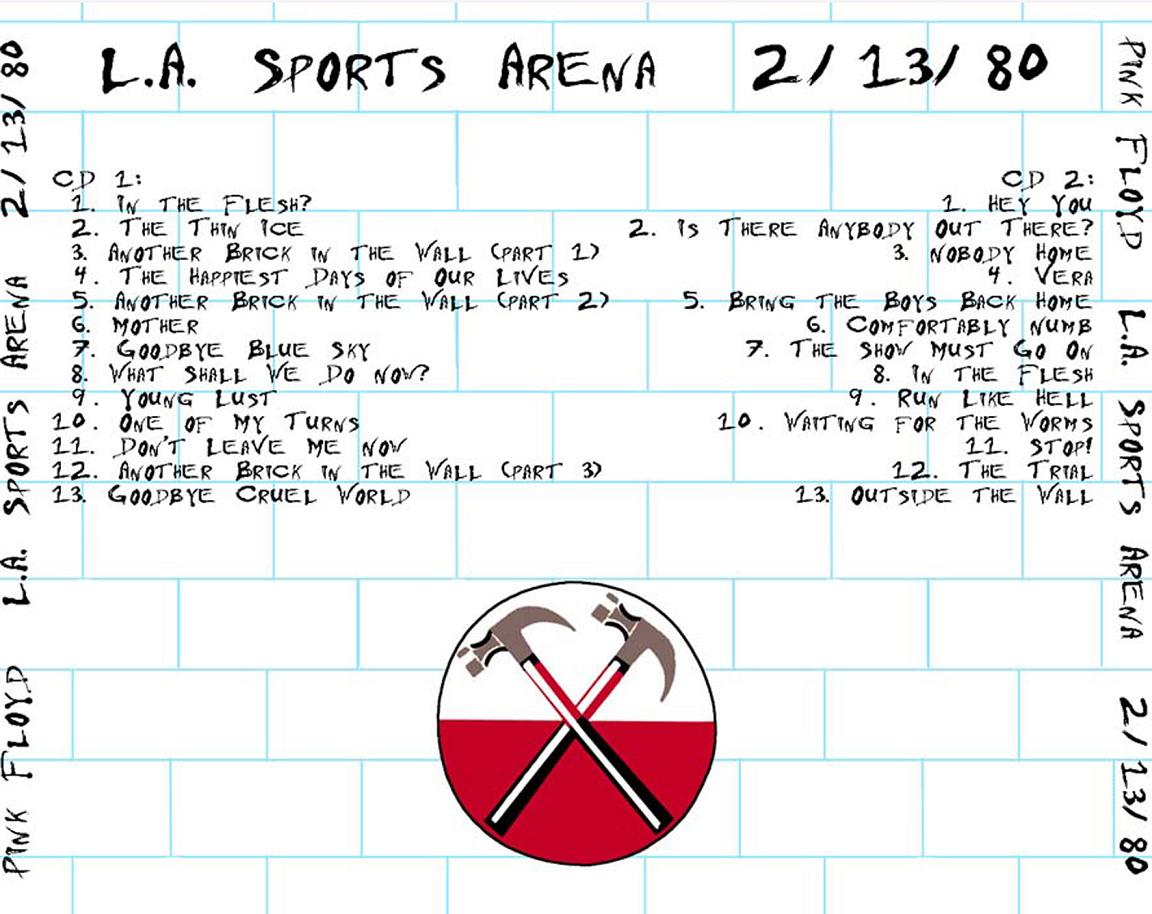 L.A. SPORTS ARENA 2/13/80
PINK FLOYD L.A. SPORTS ARENA 2/13/80
CD 1:
1. IN THE FLESH?
2. THE THIN ICE
3. ANOTHER BRICK IN THE WALL (PART 1)
4. THE HAPPIEST DAYS OF OUR LIVES
5. ANOTHER BRICK IN THE WALL (PART 2)
6. MOTHER
7. GOODBYE BLUE SKY
8. WHAT SHALL WE DO NOW?
9. YOUNG LUST
10. ONE OF MY TURNS
11. DON'T LEAVE ME NOW
12. ANOTHER BRICK IN THE WALL (PART 3)
13. GOODBYE CRUEL WORLD
CD 2:
1. HEY YOU
2. IS THERE ANYBODY OUT THERE?
3. NOBODY HOME
4. VERA
5. BRING THE BOYS BACK HOME
6. COMFORTABLY NUMB
7. THE SHOW MUST GO ON
8. IN THE FLESH
9. RUN LIKE HELL
10. WAITING FOR THE WORMS
11. STOP!
12. THE TRIAL
13. OUTSIDE THE WALL
PINK FLOYD L.A. SPORTS ARENA 2/13/80